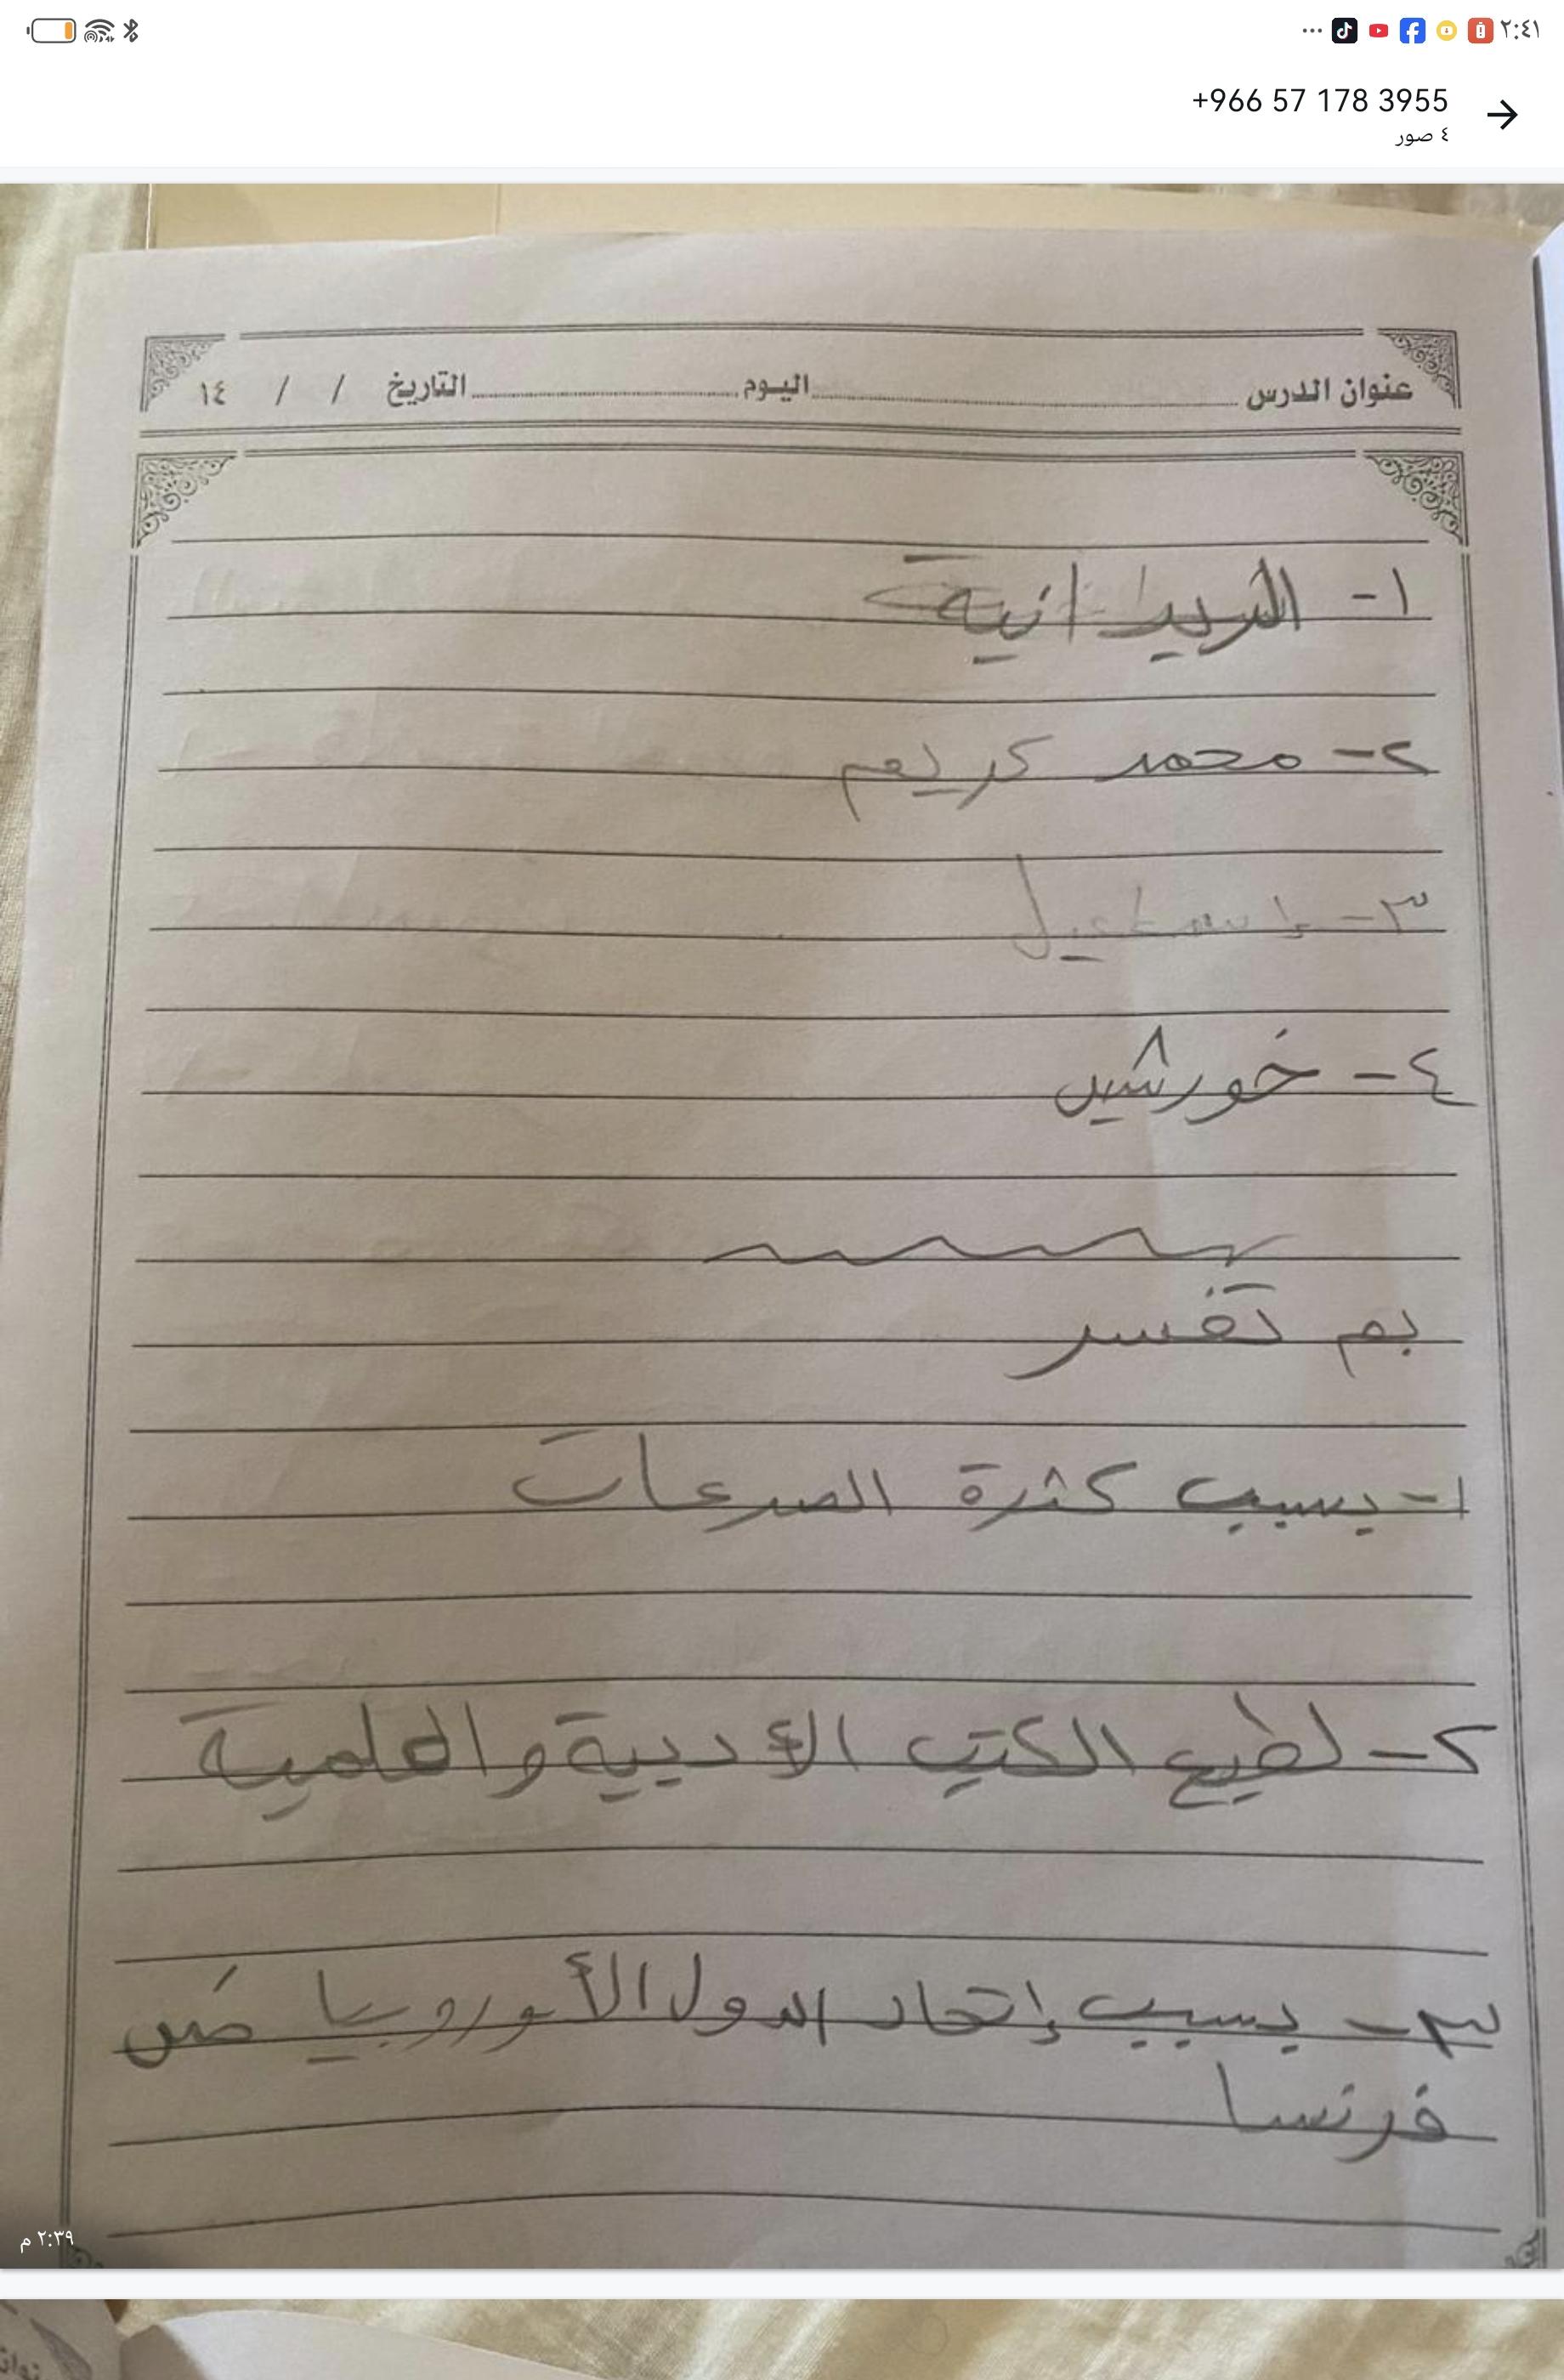 ٢:٤١
+966 57 178 3955
٤ صور
عنوان الدرس اليوم التاريخ / / ١٤
١- البريطانية
٢- محمد كريم
٣- إسماعيل
٤- خورشيد
بم تفسر
١- بسبب كثرة الصرعات
٢- لطبع الكتب الأدبية والعلمية
٣- بسبب إتحاد الدول الأوروبيا ضد
فرنسا
٢:٣٩ م